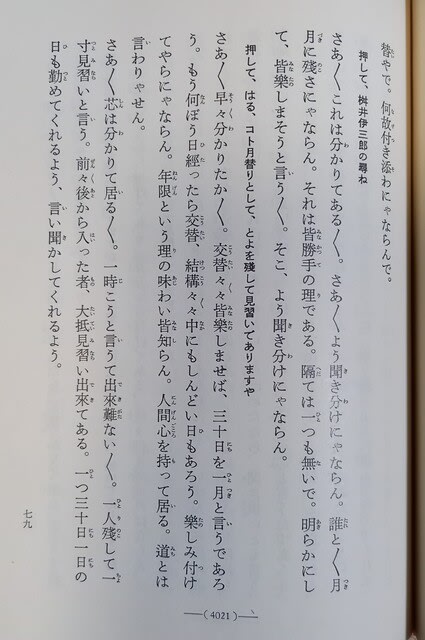 替やで。何故付き添わにゃならんで。
押して、桝井伊三郎の尋ね
さあ〳〵これは分かりてある〳〵。さあ〳〵よう聞き分けにゃならん。誰と〳〵月
月に殘さにゃならん。それは皆勝手の理である。隔ては一つも無いで。明らかにし
て、皆樂しまそうと言う〳〵。そこ、よう聞き分けにゃならん。
押して、はる、コト月替りとして、とよを殘して見習いでありますや
さあ〳〵早々分かりたか〳〵。交替々々皆樂しませば、三十日を一月と言うであろ
う。もう何ぼう日經ったら交替、結構々々中にもしんどい日もあろう。樂しみ付け
てやらにゃならん。年限という理の味わい皆知らん。人間心を持って居る。道とは
言わりゃせん。
さあ〳〵芯は分かりて居る〳〵。一時こうと言うて出來難ない〳〵。一人殘して一
寸見習いと言う。前々後から入った者、大抵見習い出來てある。一つ三十日一日の
日も勤めてくれるよう、言い聞かしてくれるよう。
七九
(4021)